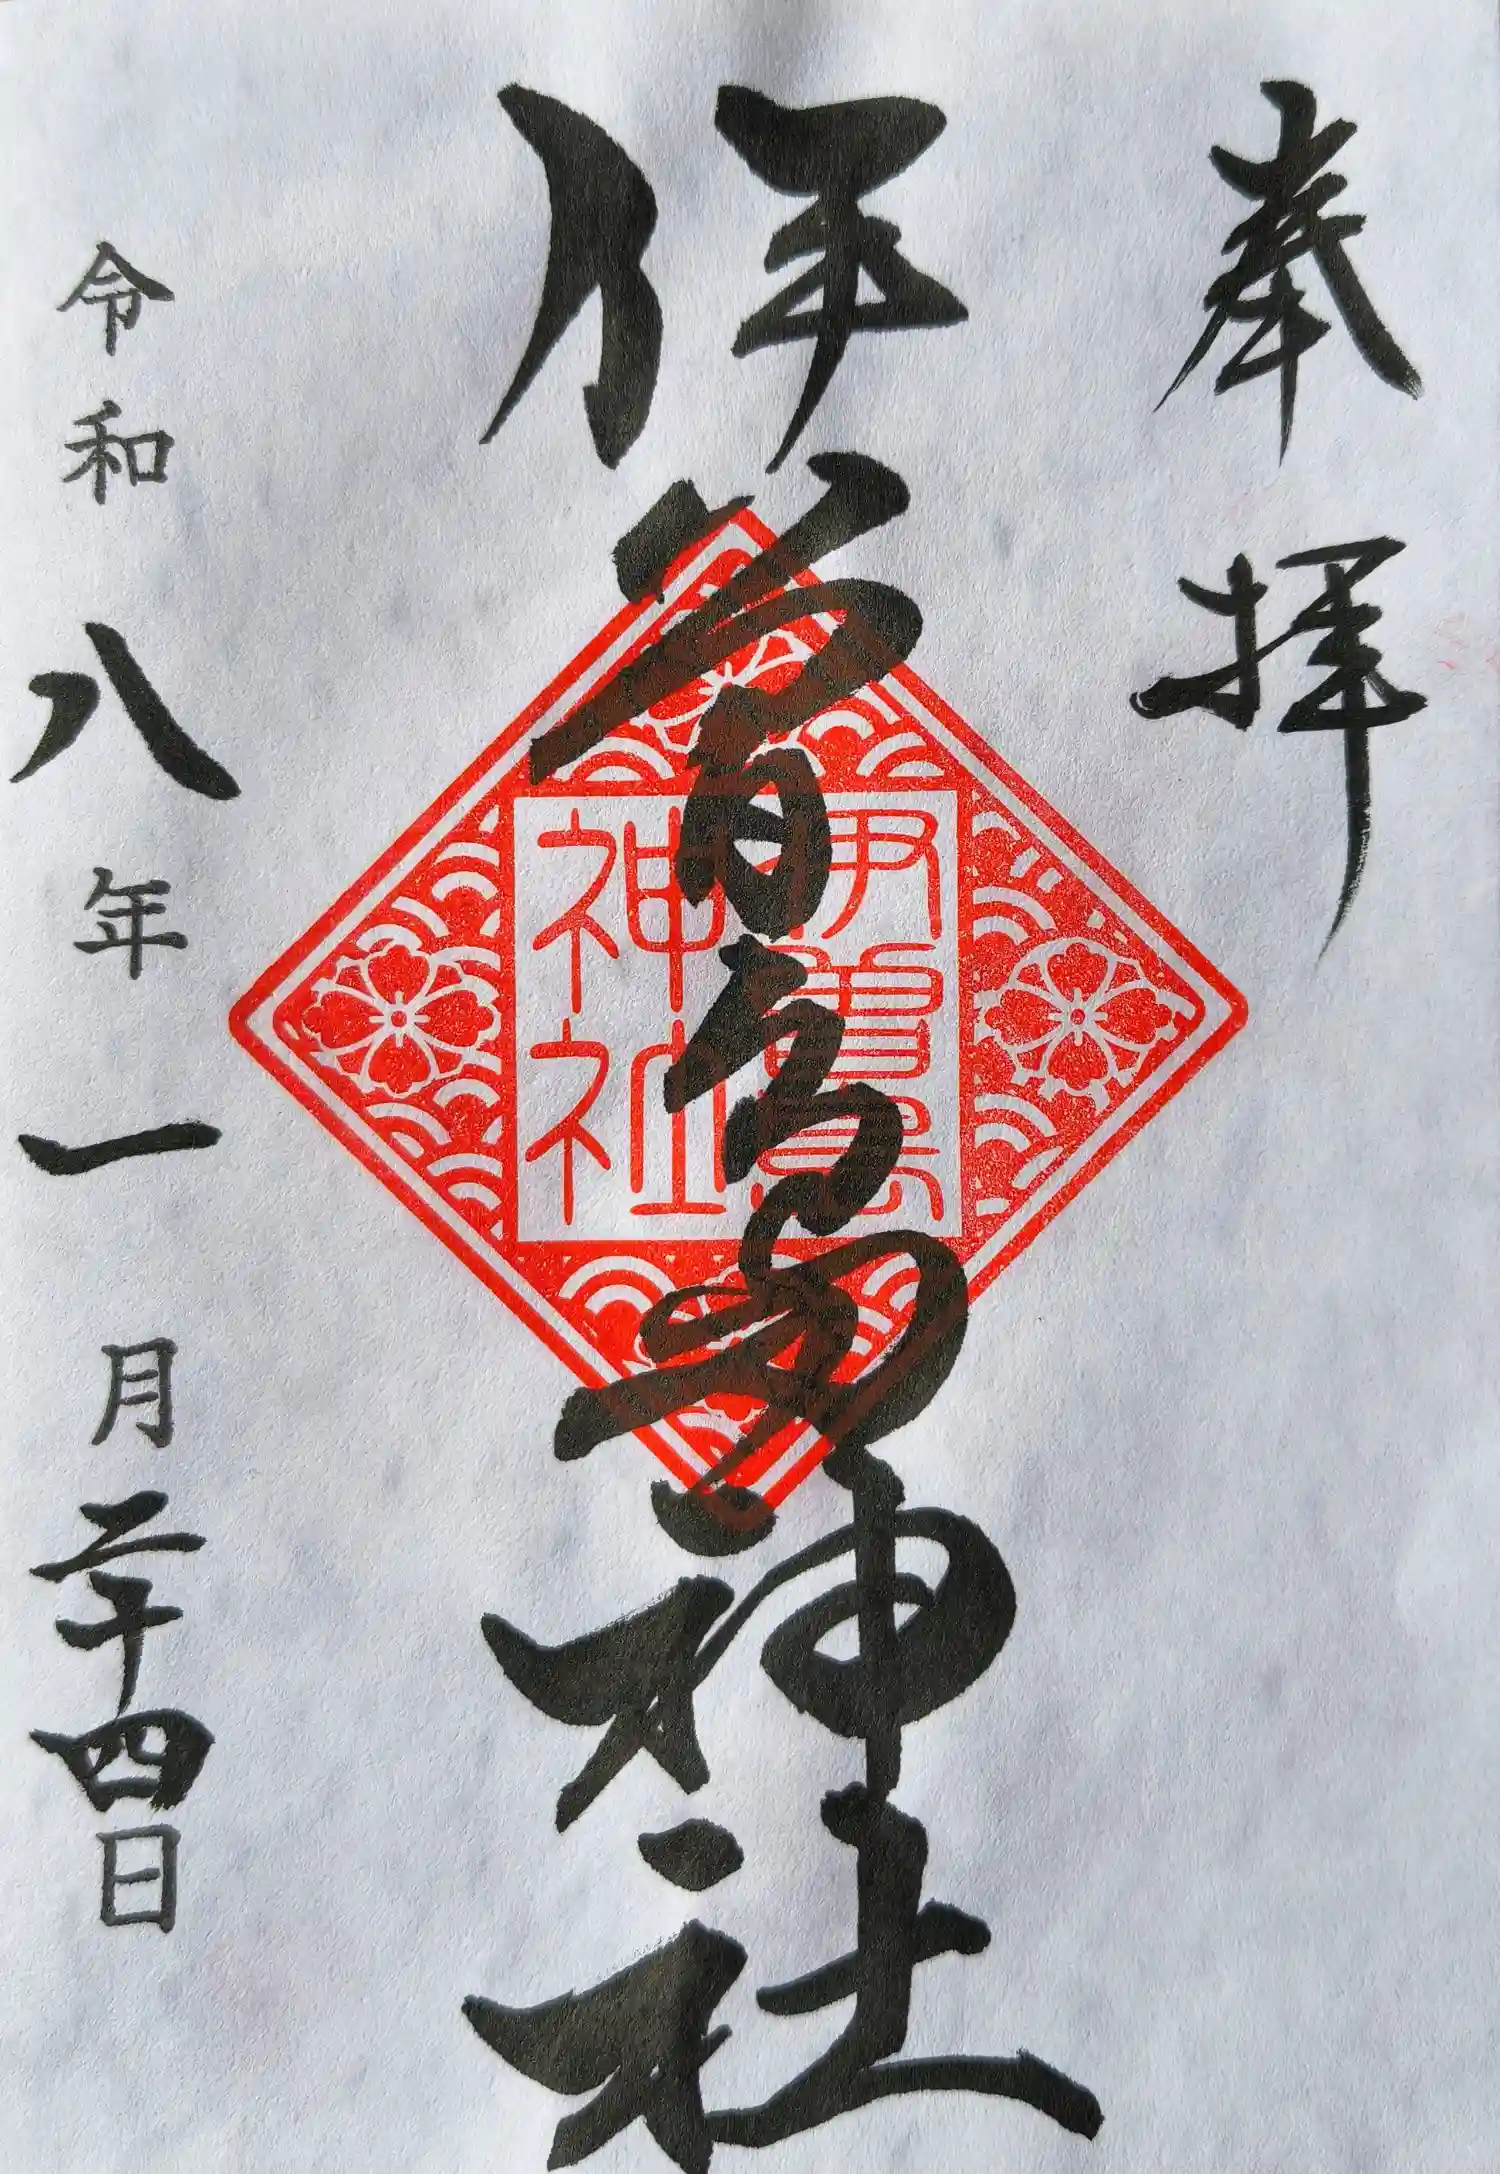 奉拝
伊曽島神社
伊曽島
神社
令和八年一月二十四日